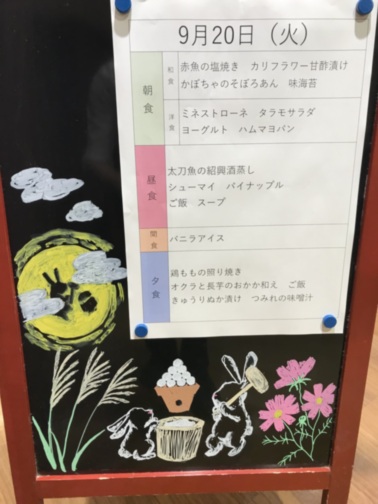 9月20日（火）
朝食
和食
赤魚の塩焼き　カリフラワー甘酢漬け
かぼちゃのそぼろあん　味海苔
洋食
ミネストローネ　タラモサラダ
ヨーグルト　ハムマヨパン
昼食
太刀魚の紹興酒蒸し
シューマイ　パイナップル
ご飯　スープ
間食
バニラアイス
夕食
鶏ももの照り焼き
オクラと長芋のおかか和え　ご飯
きゅうりぬか漬け　つみれの味噌汁